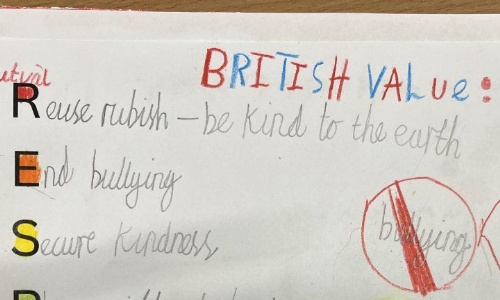 BRITISH VALUe:
Reuse rubish – be kind to the earth
End bullying
Secure kindness
bullying